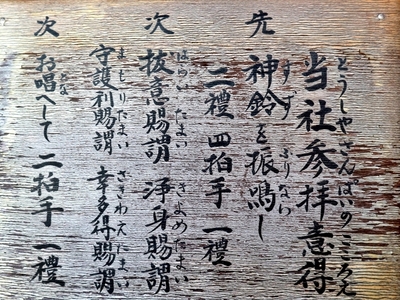 とうしやさんぱいのこころえ
当社参拝意得
すず ふりなら
先 神鈴を振鳴し
二禮四拍手一禮
はらいたまい きよめたまい
次 祓意賜謂 浄身賜謂
まもりたまい さきわえたまい
守護利賜謂 幸多得賜謂
とな
次 お唱へして 二拍手一禮